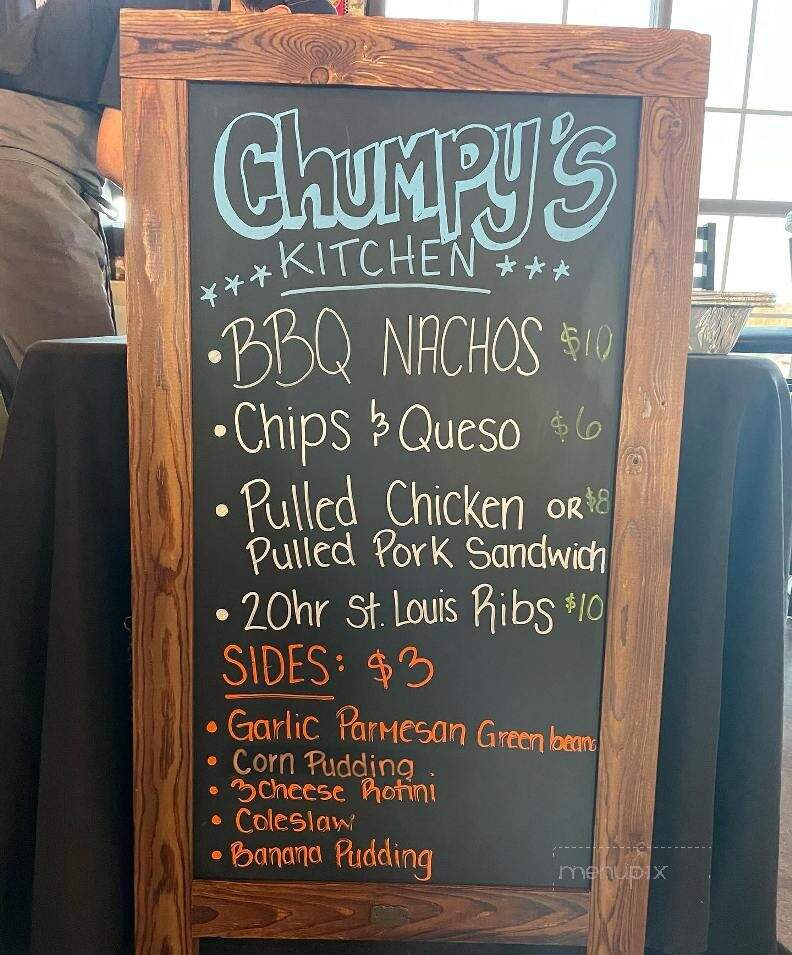 Chumpy's
***KITCHEN***
• BBQ NACHOS $10
• Chips & Queso $6
• Pulled Chicken OR $8
Pulled Pork Sandwich
• 20hr St. Louis Ribs $10
SIDES: $3
• Garlic Parmesan Green beans
• Corn Pudding
• 3 Cheese Rotini
• Coleslaw
• Banana Pudding
menupix